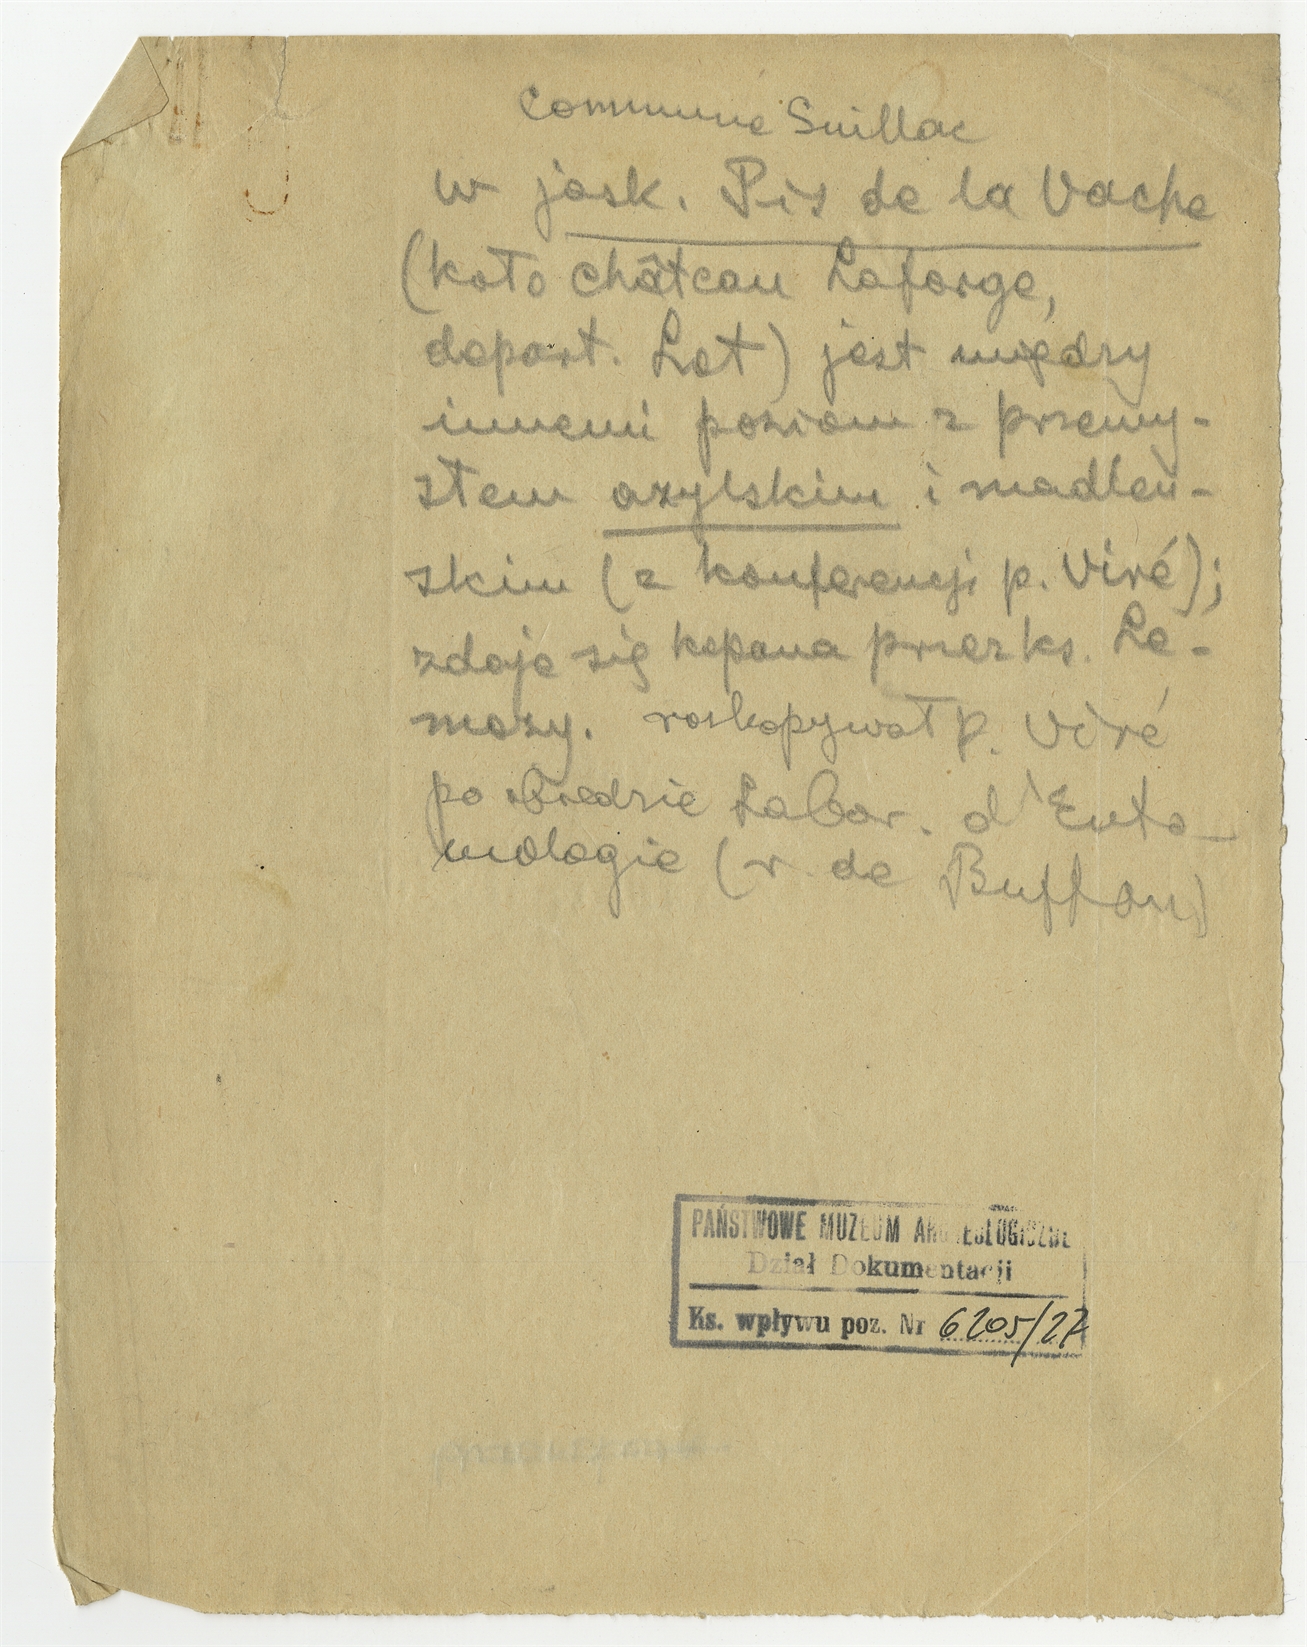 commune Suillac
w jask. Pis de la Vache
(koło château Laforge,
depart. Lot) jest między
innemi poziom z przemy-
słem azylskim i madleń-
skim (z konferencji p. Viré);
zdaje się kopana przez ks. Le-
mozy. rozkopywał p. Viré
po obiedzie Labor. d'Ento-
mologie (r. de Buffon)
PAŃSTWOWE MUZEUM ARCHEOLOGICZNE
Dział Dokumentacji
Ks. wpływu poz. Nr 6205/27